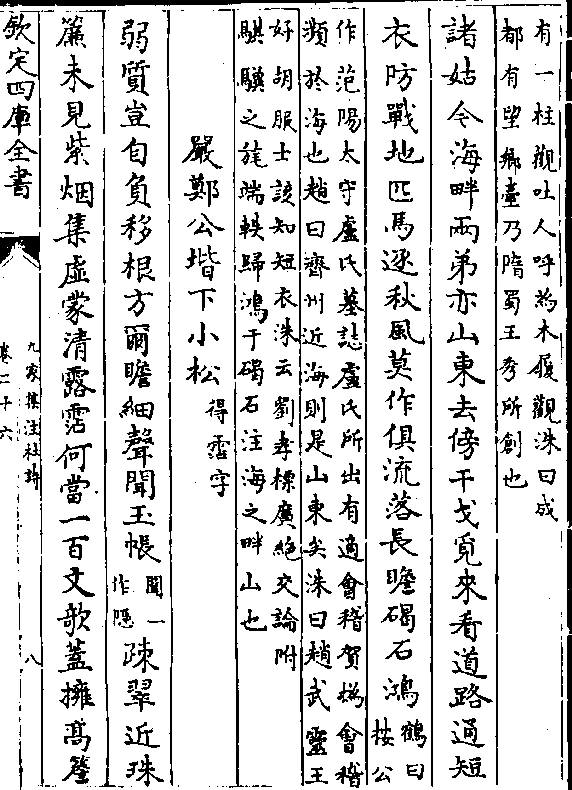 有一柱觀吐人呼為木履觀洙曰成
都有望鄉臺乃隋蜀王秀所創也
諸姑今海畔兩弟亦山東去傍干戈覓來看道路通短
衣防戰地匹馬逐秋風莫作俱流落長瞻碣石鴻
鶴曰
按公
作范陽太守盧氏墓誌盧氏所出有適會稽賀撝會稽
瀕於海也趙曰齊州近海則是山東矣洙曰趙武靈王
好胡服士該知短衣洙云劉孝標廣絶交論附
騏驥之旄端軼歸鴻于碣石注海之畔山也
嚴鄭公堦下小松
得霑字
弱質豈自負移根方爾瞻細聲聞玉帳
聞一
作隱
疎翠近珠
簾未見紫烟集虛蒙清露霑何當一百丈欹蓋擁高簷
欽定四庫全書
九家集注杜詩
卷二十六
八